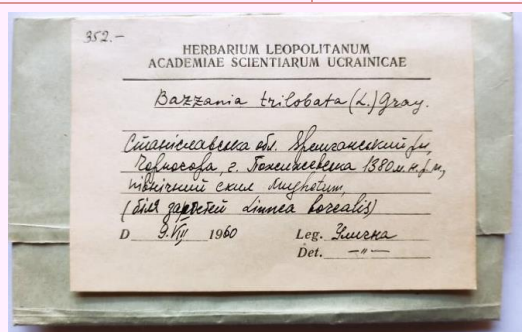 352.-
HERBARIUM LEOPOLITANUM
ACADEMIAE SCIENTIARUM UCRAINICAE
Bazzania trilobata (L.) Gray.
Станіславська обл. Яремчанський р-н,
Чорногора, г. Пожижевська 1380 м.н.р.м,
північний схил Mughetum,
(біля заростей Linnea borealis)
D 9.VII 1960 Leg. Улична
Det. —"—